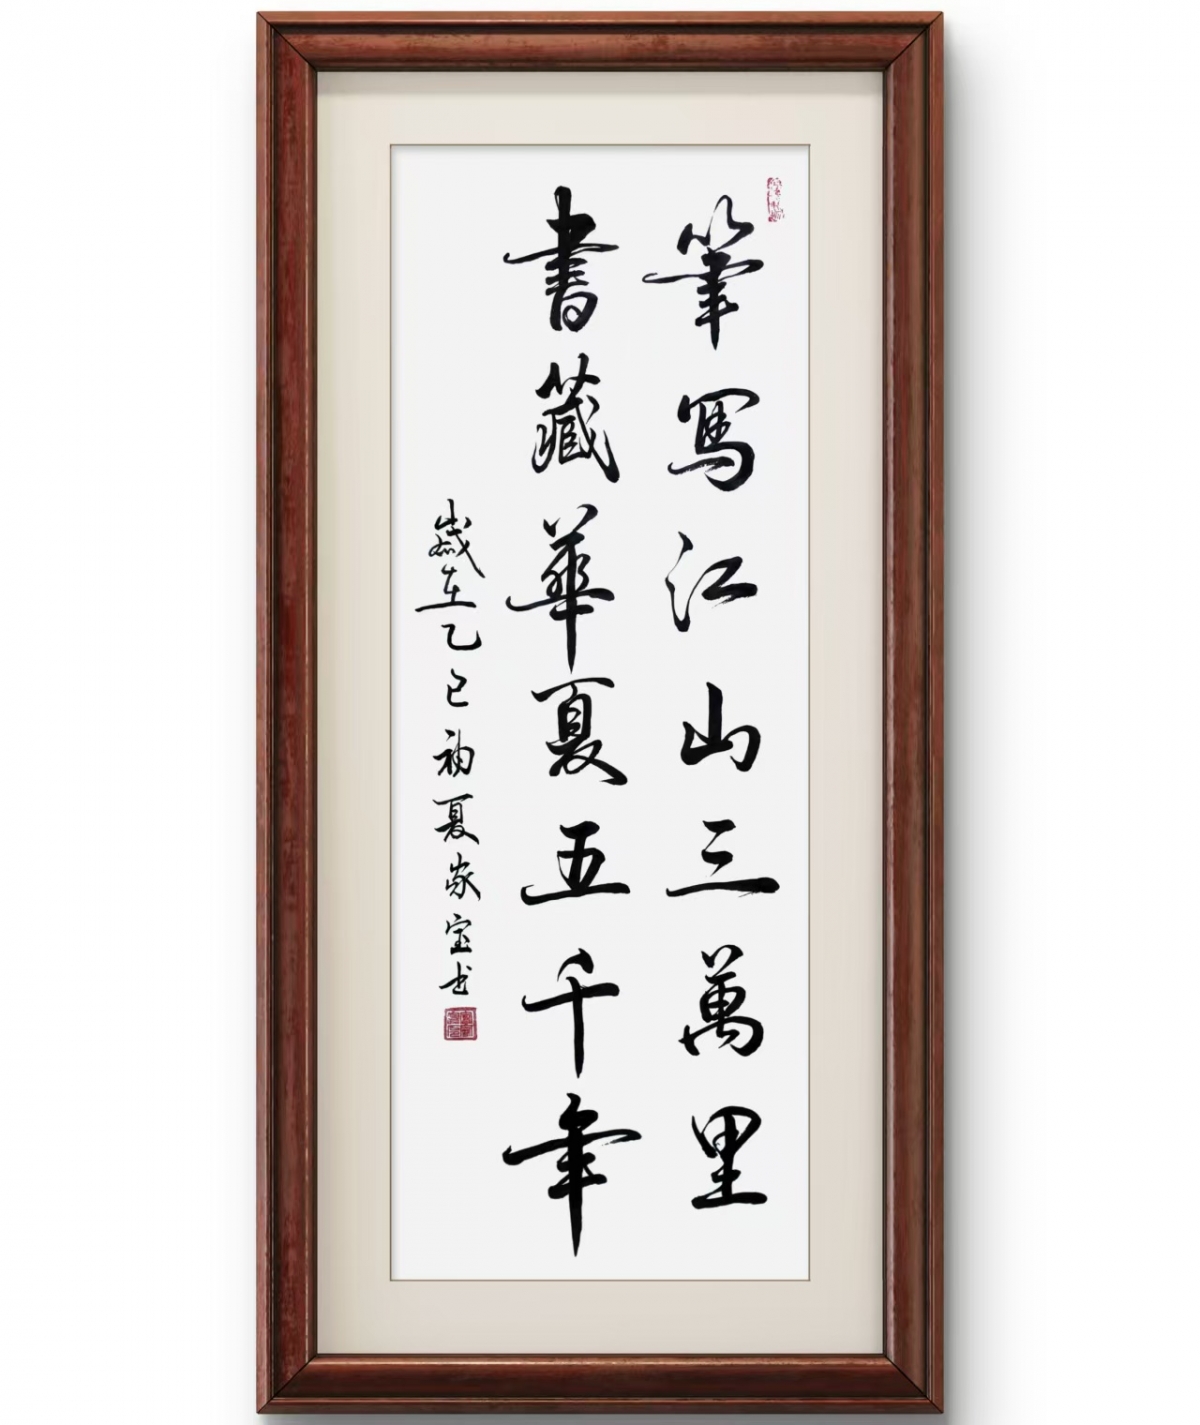 筆寫江山三萬里
書藏華夏五千年
歲在乙巳初夏家宝书